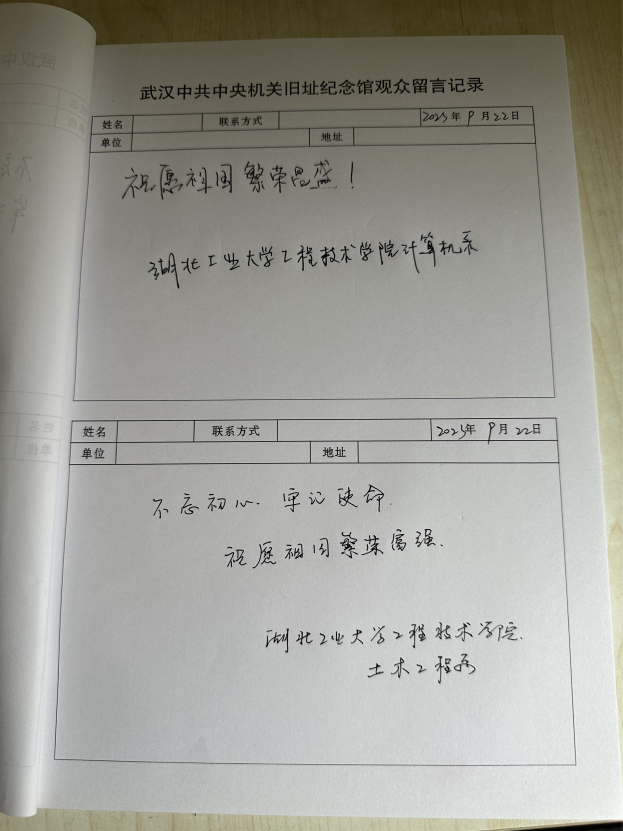 武汉中共中央机关旧址纪念馆观众留言记录
姓名 联系方式 2023年9月22日
单位 地址
祝愿祖国繁荣昌盛!
湖北工业大学工程技术学院计算机系
姓名 联系方式 2023年9月22日
单位 地址
不忘初心.牢记使命.
祝愿祖国繁荣富强.
湖北工业大学工程技术学院.
土木工程系